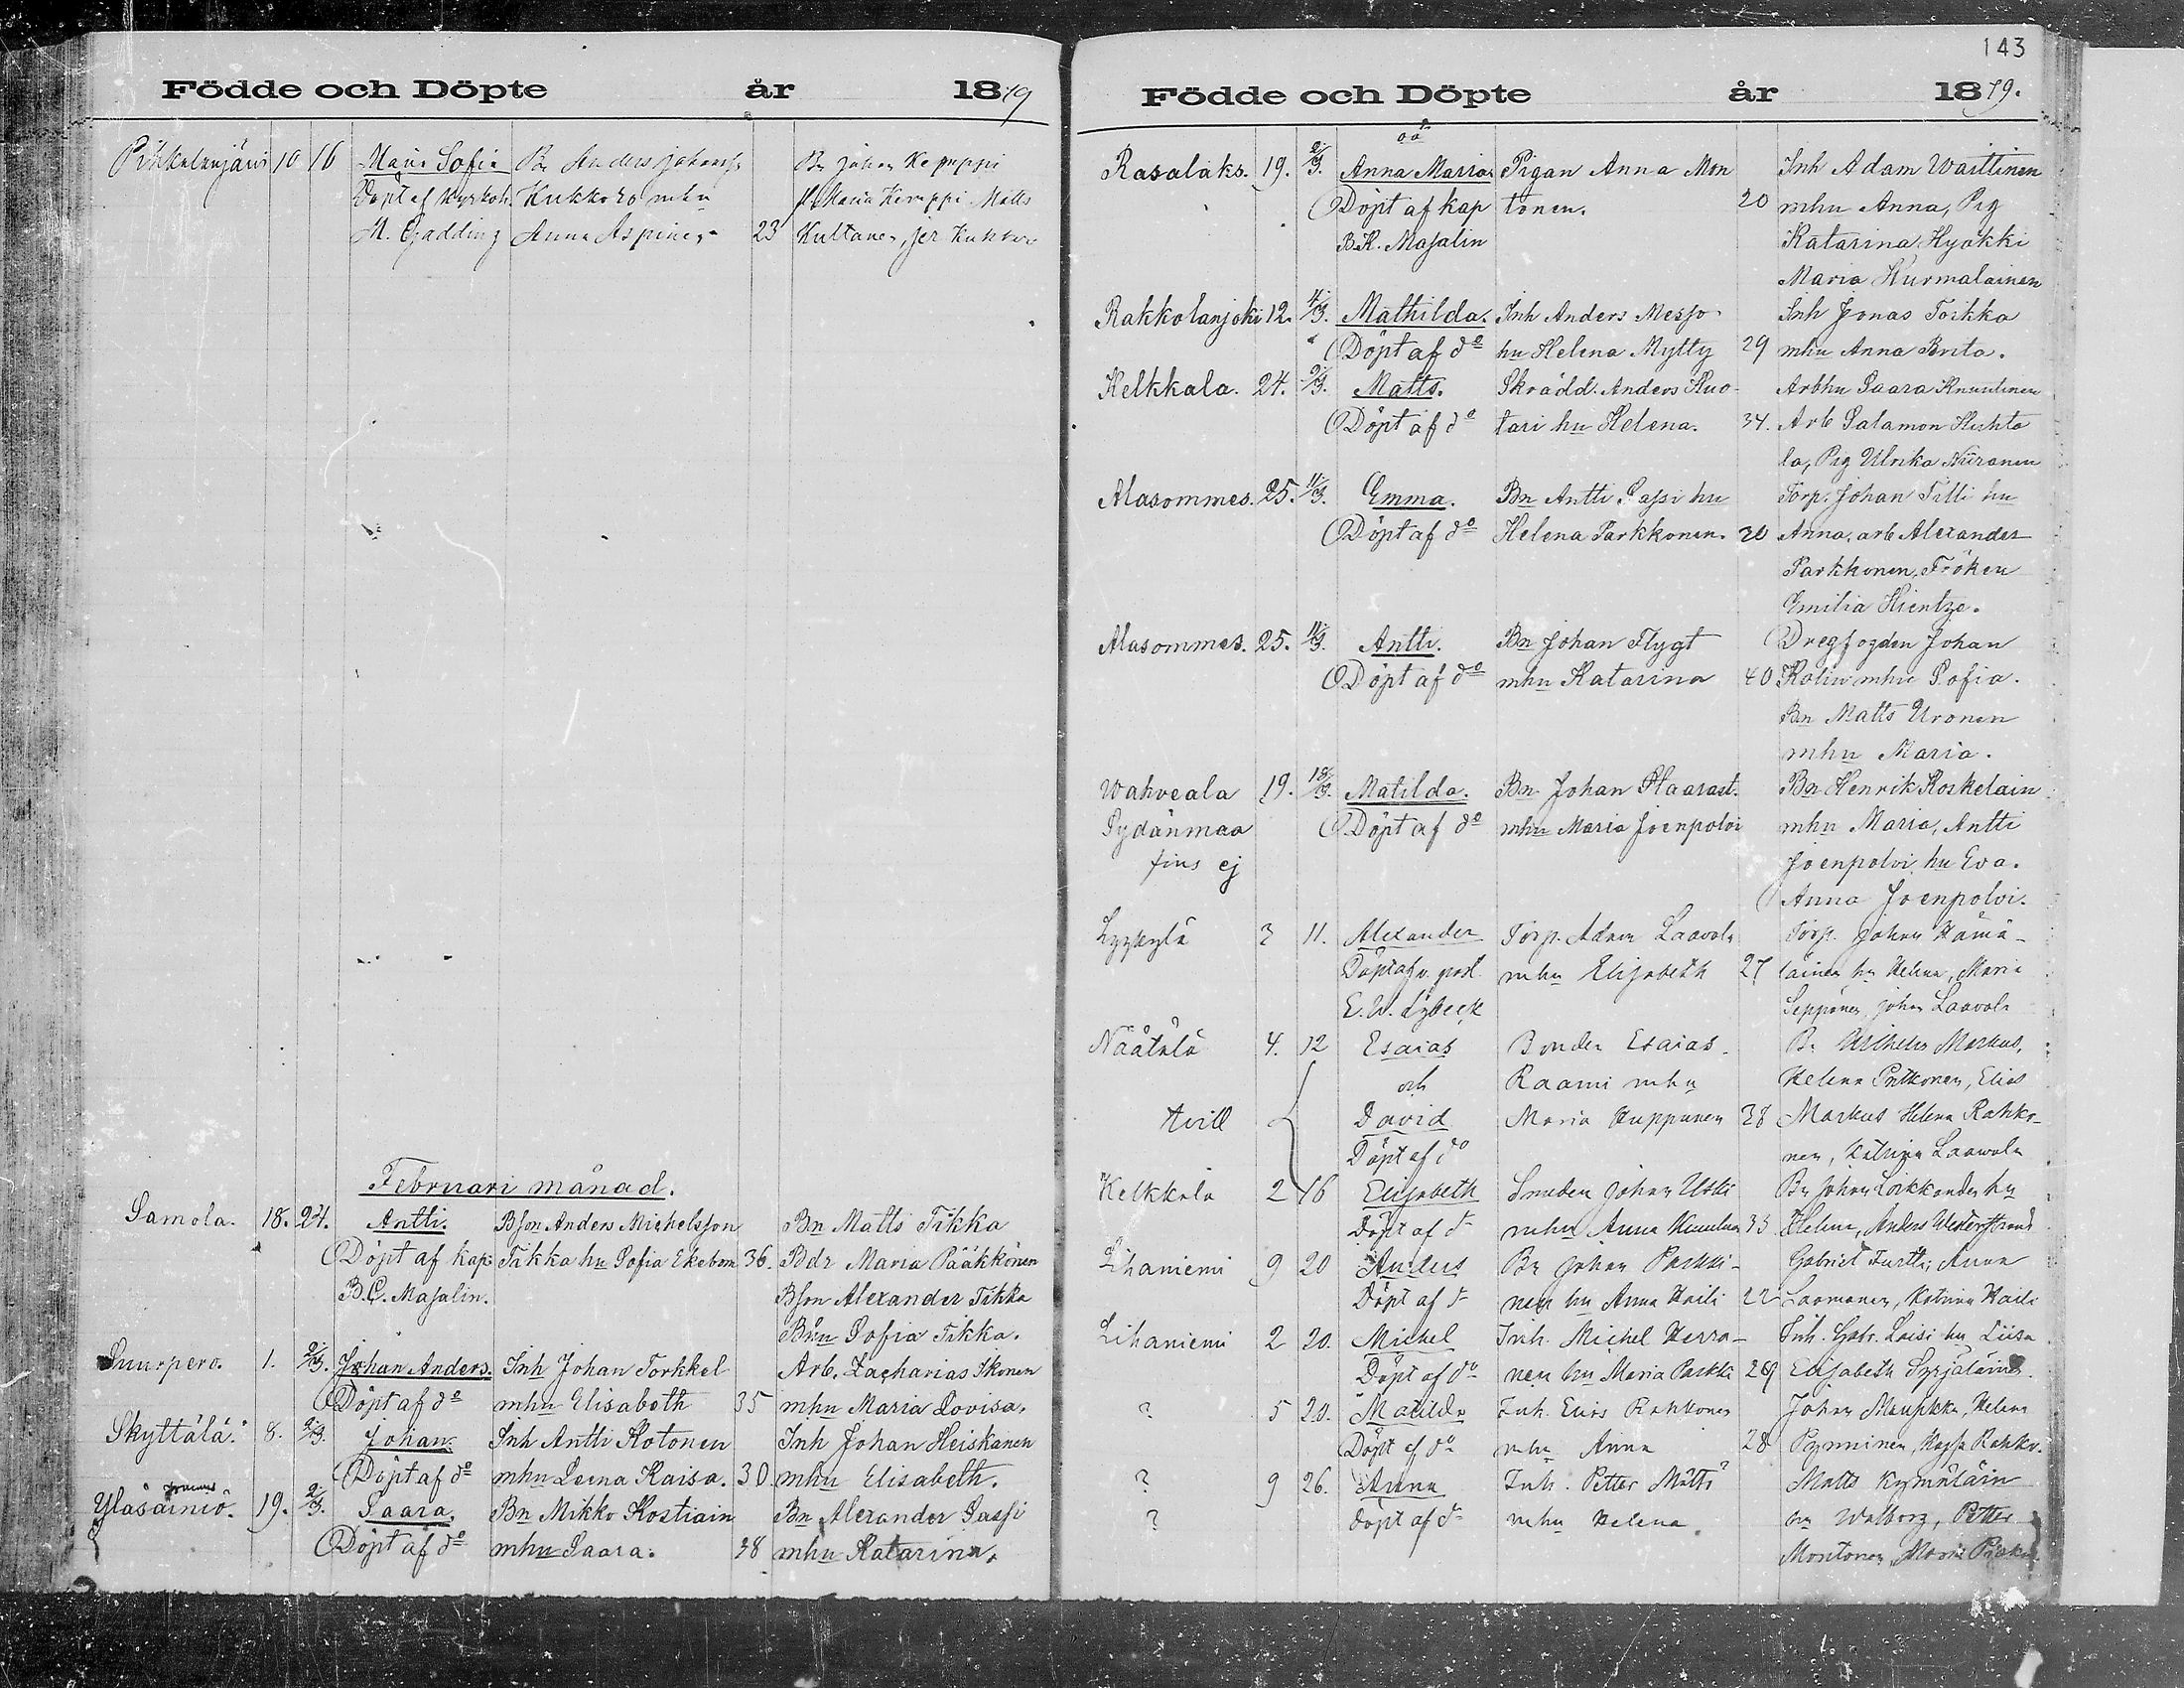 Födde och Döpte år 1879
10 16 Maria Sofia Bn Anders Johanss Bn Johan Kemppi
Döpt af Kyrkoh. Kukko mhu Maria Kemppi Matts
M. Anna 23 Kultanen, Jer Kukko
Februari månad.
Samola. 18. 24. Antti. Bson Anders Michelsson Bn Matts Tikka
Döpt af kap: Tikka hu Sofia Ekebom 36. Bdr Maria Pääkkönen
B.C. Masalin. Bson Alexander Tikka
Bhu Sofia Tikka.
Suurpero. 1. 2/3. Johan Anders. Inh Johan Torkkel Arb. Zacharias Ikonen
Döpt af do mhu Elisabeth 35 mhu Maria Lovisa,
Skyttälä. 8. 2/3. Johan. Inh Antti Kotonen Inh Johan Heiskanen
Döpt af do mhu Leena Kaisa. 30. mhu Elisabeth.
Yläsäiniö. 19. 2/3. Saara. Bn Mikko Kostiain Bn Alexander Sassi
Döpt af do mhu Saara. 38 mhu Katarina.
143
Födde och Döpte år 1879.
oä
Rasalaks. 19. 2/3. Anna Maria. Pigan Anna Mon Inh Adam Waittinen
Döpt af kap tonen. 20 mhu Anna, Pig
B.K. Masalin Katarina Hyökki
Maria Kurmalainen
Rakkolanjoki 12. 4/3. Mathilda. Inh Anders Messo Inh Jonas Toikka
Döpt af do hu Helena Mytty 29 mhu Anna Brita.
Kelkkala. 24. 9/3. Matts. Skrädd. Anders Ruo- Arbhu Saara Knuutinen
Döpt af do tari hu Helena. 34. Arb Salamon Huhta
la, Pig Ulrika Niiranen
Alasommes. 25. 11/3. Emma. Bn Antti Sassi hu Torp. Johan Tilli hu
Döpt af do Helena Parkkonen. 30 Anna, arb Alexander
Parkkonen, Fröken
Emilia Hientze.
Alasommes. 25. 11/3. Antti. Bn Johan Flygt Dregfogden Johan
Döpt af do mhu Katarina 40 mhu Sofia.
Bn Matts Uronen
mhu Maria.
Wahveala 19. 18/3. Matilda. Bn Johan Haarast. Bn Henrik Koskelain
Sydänmaa Döpt af do mhu Maria Joenpolvi mhu Maria, Antti
fins ej Joenpolvi hu Eva.
Anna Joenpolvi.
Lyykylä 3 11. Alexander Torp. Adam Laavola Torp. Johan Hämä-
Döpt af v. past. mhu Elisabeth 27 läinen hu Helena, Maria
E.W. Lybeck Seppänen, Johan Laavola
Näätälä 4. 12 Esaias Bonden Esaias Bn Wilhelm Markus,
och Raami mhu Helena Pulkonen, Elias
tvill David Maria Huppunen 38 Markus Helena Rahko-
Döpt af do nen, Katrina Laavola
Kelkkala 2 16 Elisabeth Smeden Johan Uski Bn Johan hu
Döpt af do mhu Anna 33 Helena, Anders Westerstrand
Lihaniemi 9 20 Anders Bn Johan Parkki- Gabriel Turtti, Anna
Döpt af do nen hu Anna Haili 22 Laamanen, Katrina Haili
Lihaniemi 2 20. Michel Inh. Michel Herra- Inh. Gabr. Loisi hu Liisa
Döpt af do nen hu Maria Parkki 29 Elisabeth Syrjäläinen.
? 5 20. Matilda Inh. Elias Rahkonen Johan Maupkka, Helena
Döpt af do mhu Anna 28 Pynninen, Rahko.
? 9 26. Anna Inh. Petter Mättö Matts Kymäläin
? Döpt af do mhu Helena. hu Walborg, Petter
Montonen, Maria